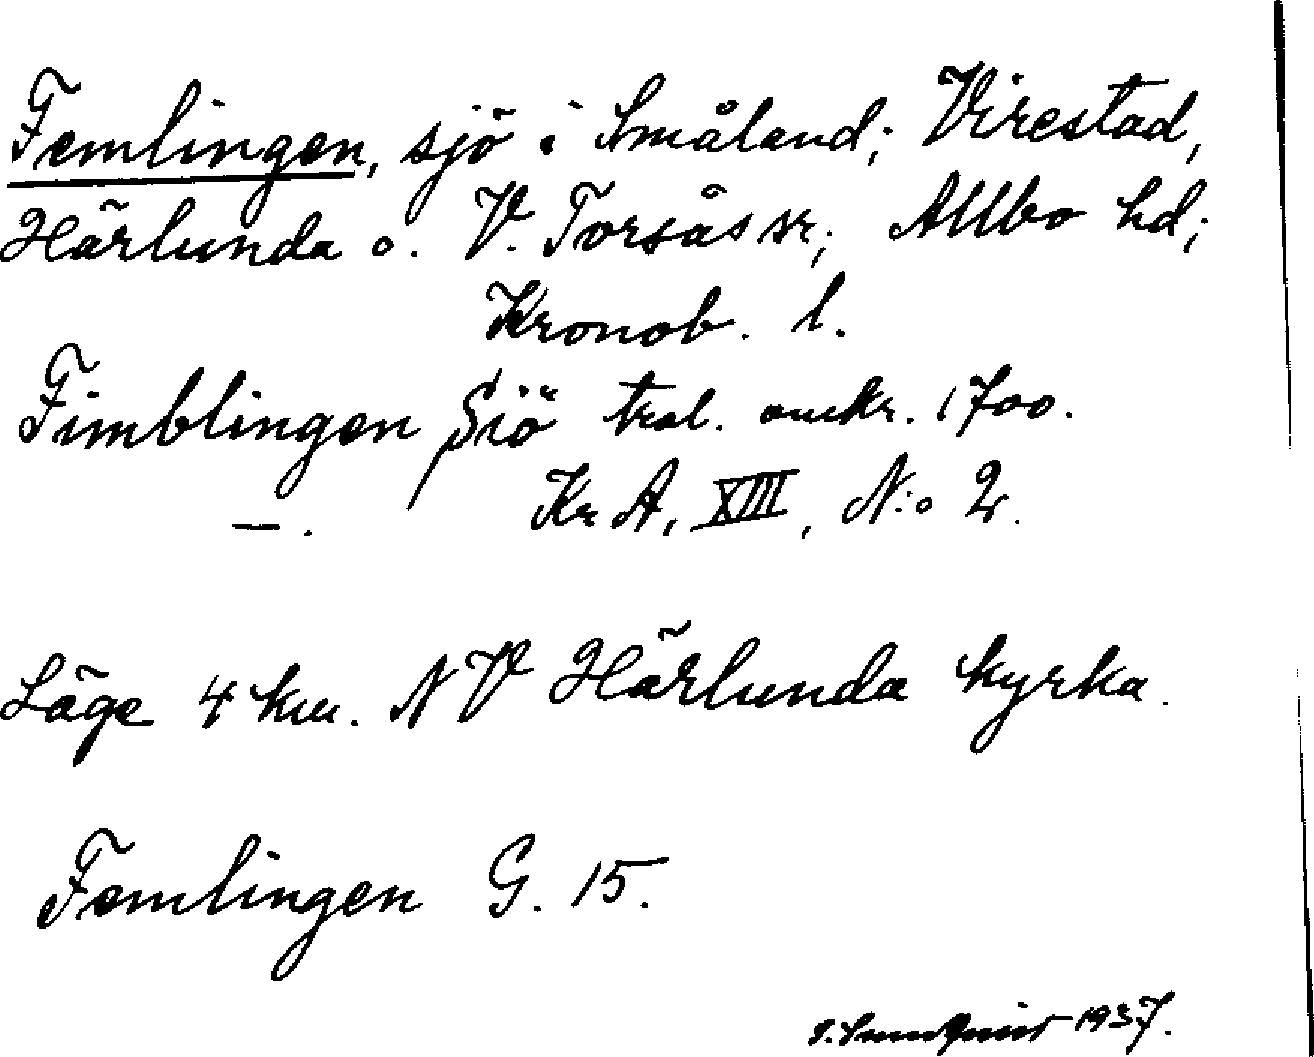 Femlingen, sjö i Småland; Virestad,
Härlunda o. V. Torsås sr; Allbo hd;
Kronob. l.
Fimblingen Siö trol. omkr. 1700.
—. Kr A, XIII, N:o 2.
Läge 4 km. NV Härlunda kyrka.
Femlingen G. 15.
1937.